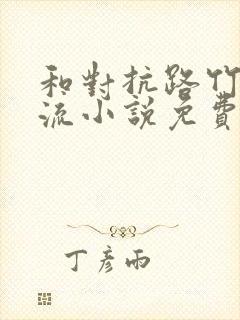 和對抗路竹
流小說免費
丁彥雨